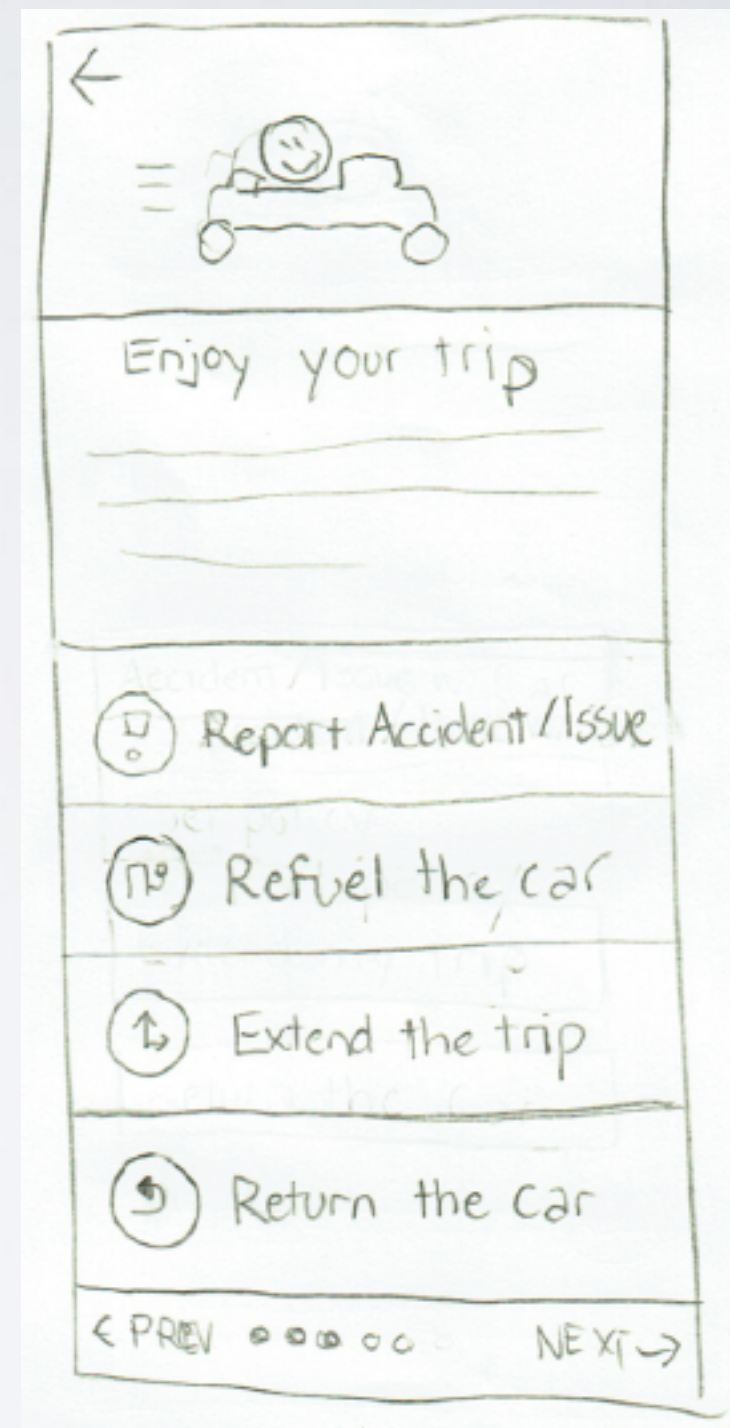 Enjoy your trip
Report Accident/Issue
Refuel the car
Extend the trip
Return the car
PREV NEXT